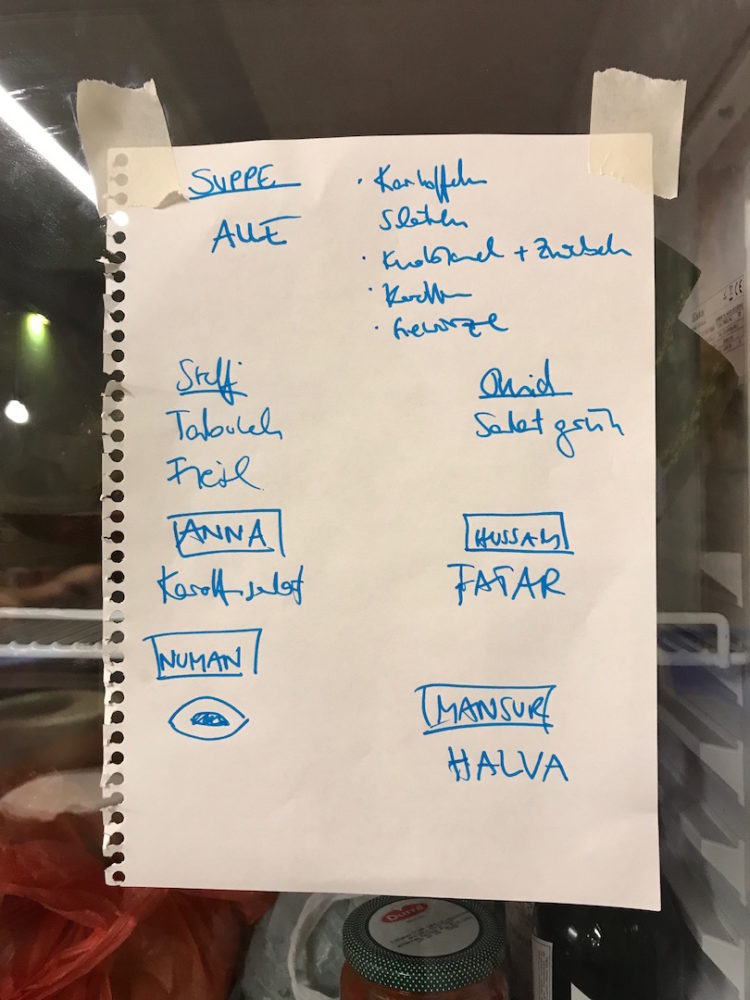 SUPPE
ALLE
· Kartoffeln
· Knoblauch + Zwiebeln
· Karotten
· Gewürze
Steffi
Tabouleh
Omid
Salat grün
ANNA
Karottensalat
HUSSAM
FATAR
NUMAN
MANSUR
HALVA
Durra